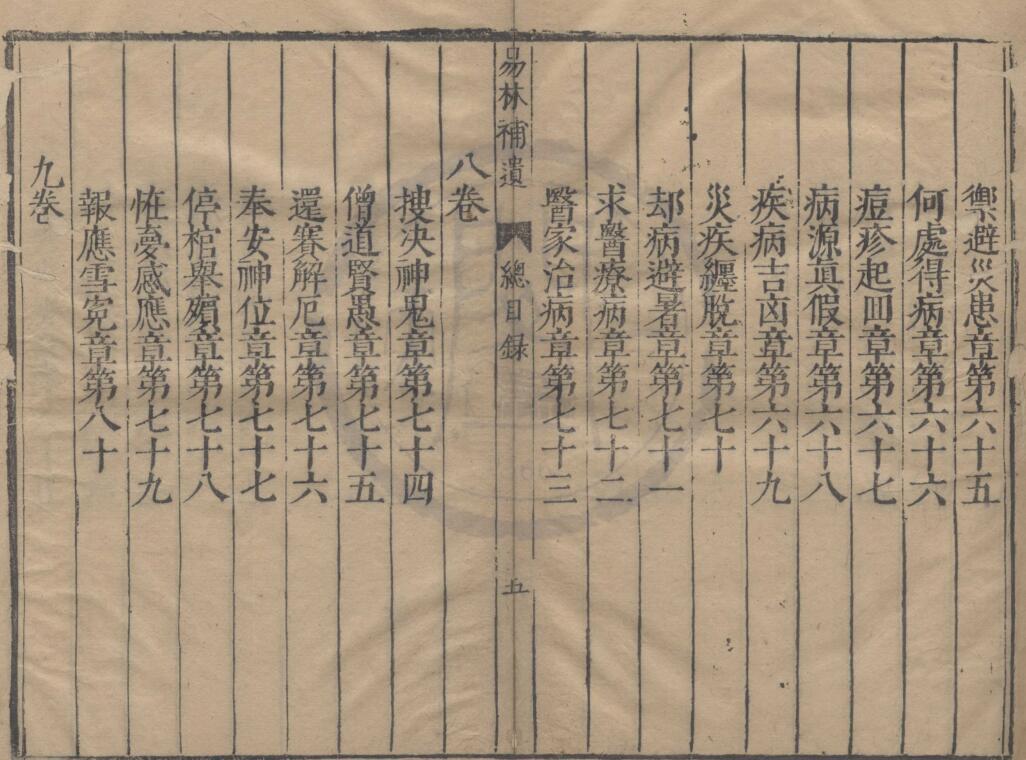 禦避災患章第六十五
何處得病章第六十六
痘疹起回章第六十七
病源眞假章第六十八
疾病吉凶章第六十九
災疾纏脫章第七十
却病避暑章第七十一
求醫療病章第七十二
醫家治病章第七十三
易林補遺 總目錄 五
八卷
搜決神鬼章第七十四
僧道賢愚章第七十五
還賽解厄章第七十六
奉安神位章第七十七
停棺舉殯章第七十八
怪憂感應章第七十九
報應雪冤章第八十
九卷